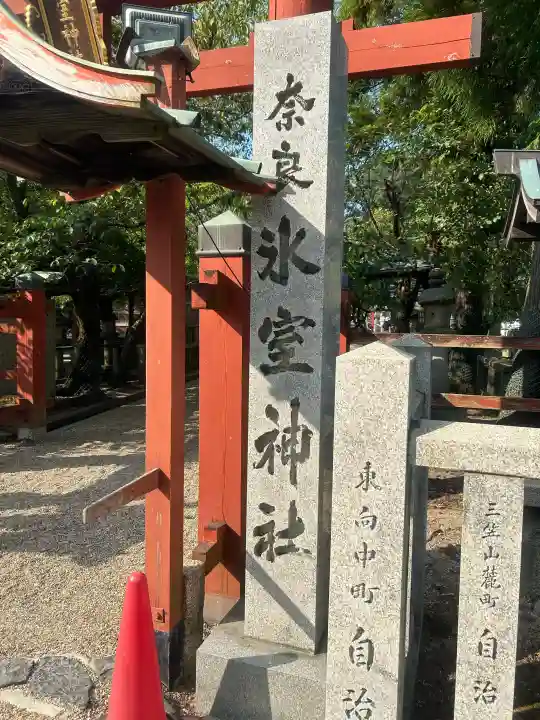 奈良氷室神社
東向中町自治
三笠山麓町自治